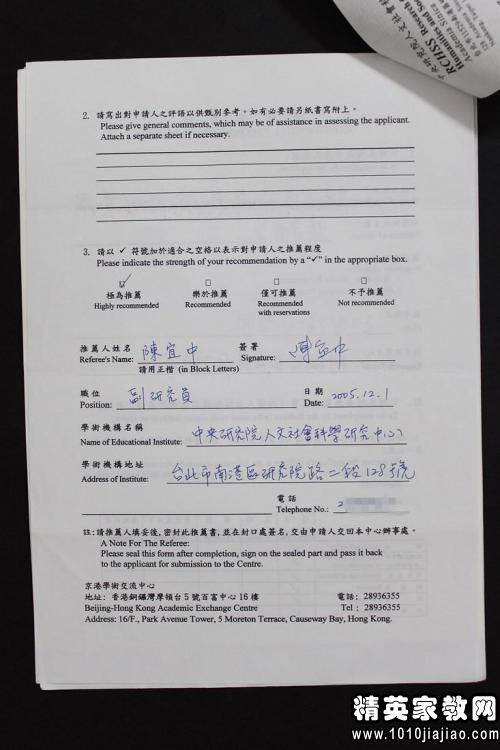 中央研究院人文社會科
RCHSS Research
Humanities and Soc
Academia Sinica
2. 請寫出對申請人之評語以供甄別參考。如有必要請另紙書寫附上。
Please give general comments, which may be of assistance in assessing the applicant.
Attach a separate sheet if necessary.
3. 請以 ✓ 符號加於適合之空格以表示對申請人之推薦程度
Please indicate the strength of your recommendation by a "✓" in the appropriate box.
✓ □ □ □
極為推薦 樂於推薦 僅可推薦 不予推薦
Highly recommended Recommended Recommended Not recommended
with reservations
推薦人姓名 簽署
Referee's Name: 陳宜中 Signature: 陳宜中
請用正楷 (in Block Letters)
職位 日期
Position: 副研究員 Date: 2005.12.1
學術機構名稱
Name of Educational Institute: 中央研究院人文社會科學研究中心
學術機構地址
Address of Institute: 台北市南港區研究院路二段128號
電話
Telephone No.: 2
註:請推薦人填妥後,密封此推薦書,並在封口處簽名,交由申請人交回本中心辦事處。
A Note For The Referee:
Please seal this form after completion, sign on the sealed part and pass it back
to the applicant for submission to the Centre.
京港學術交流中心
地址: 香港銅鑼灣摩頓台5號百富中心16樓 電話: 28936355
Beijing-Hong Kong Academic Exchange Centre Tel : 28936355
Address: 16/F., Park Avenue Tower, 5 Moreton Terrace, Causeway Bay, Hong Kong.
精英家教网
www.1010jiajiao.com